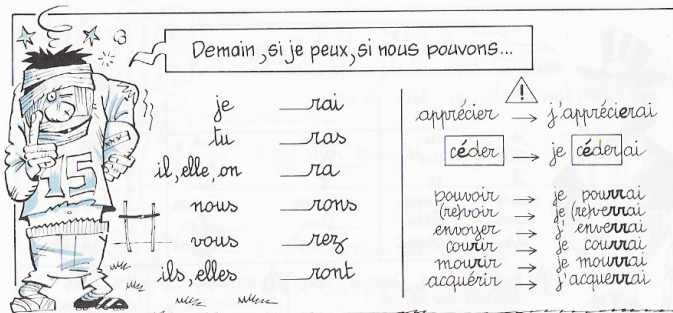 Demain, si je peux, si nous pouvons...
15
je __rai
tu __ras
il, elle, on __ra
nous __rons
vous __rez
ils, elles __ront
!
apprécier → j'apprécierai
céder → je céderai
pouvoir → je pourrai
(re)voir → je (re)verrai
envoyer → j'enverrai
courir → je courrai
mourir → je mourrai
acquérir → j'acquerrai